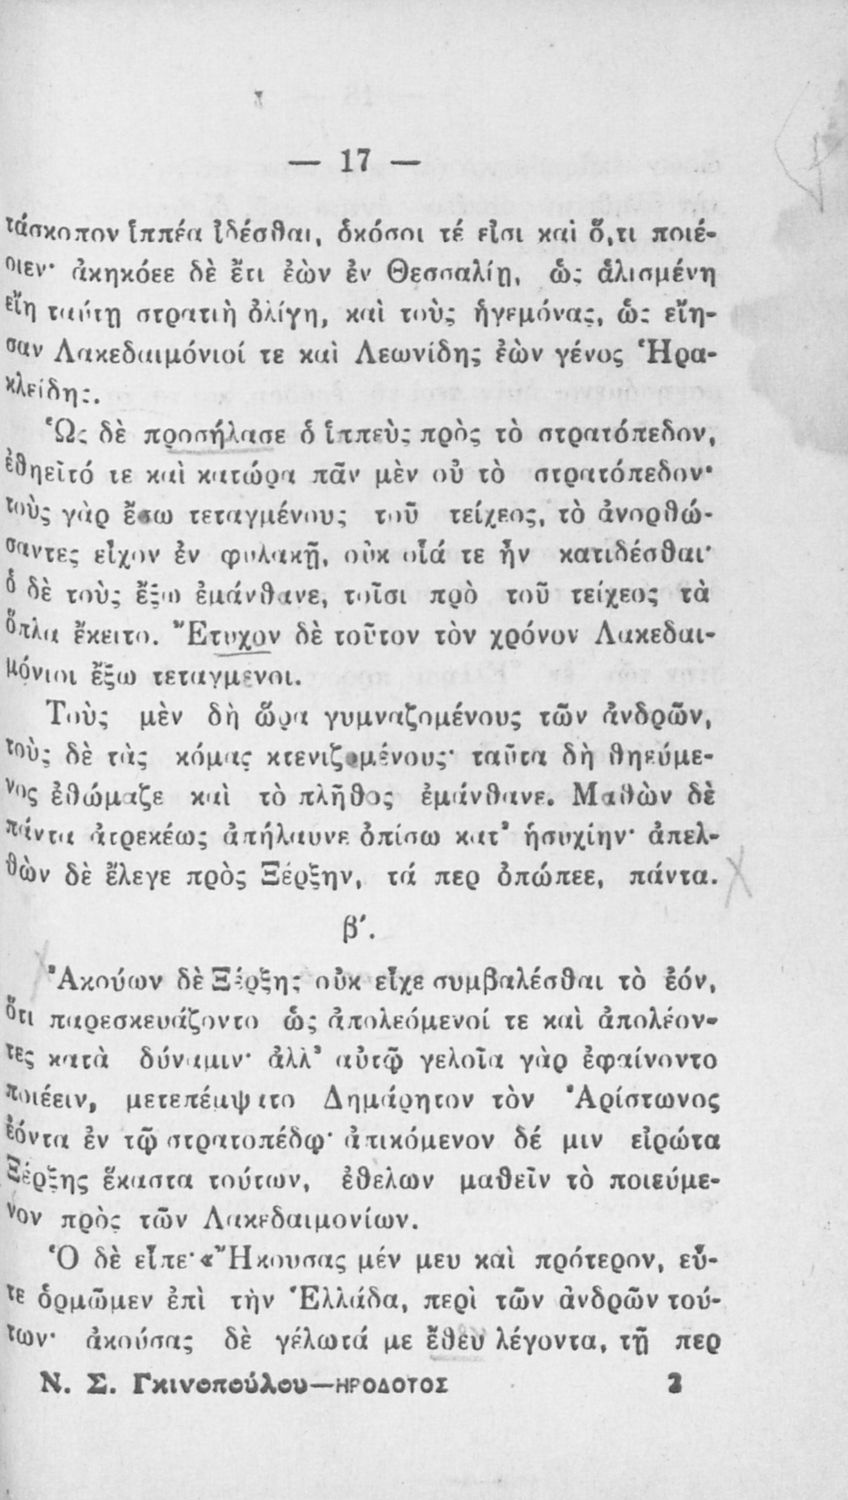 — 17 —
τάσκοπον ἱππέα ἰδέσθαι, ὁκόσοι τέ εἰσι καὶ ὅ,τι ποιέ-
οιεν· ἀκηκόεε δὲ ἔτι ἐὼν ἐν Θεσσαλίῃ, ὡς ἁλισμένη
εἴη ταύτῃ στρατιὴ ὀλίγη, καὶ τοὺς ἡγεμόνας, ὡς εἴη-
σαν Λακεδαιμόνιοί τε καὶ Λεωνίδης ἐὼν γένος Ἡρα-
κλείδης.
Ὡς δὲ προσήλασε ὁ ἱππεὺς πρὸς τὸ στρατόπεδον,
ἐθηεῖτό τε καὶ κατώρα πᾶν μὲν οὐ τὸ στρατόπεδον·
τοὺς γὰρ ἔσω τεταγμένους τοῦ τείχεος, τὸ ἀνορθώ-
σαντες εἶχον ἐν φυλακῇ, οὐκ οἷά τε ἦν κατιδέσθαι·
ὁ δὲ τοὺς ἔξω ἐμάνθανε, τοῖσι πρὸ τοῦ τείχεος τὰ
ὅπλα ἔκειτο. Ἔτυχον δὲ τοῦτον τὸν χρόνον Λακεδαι-
μόνιοι ἔξω τεταγμενοι.
Τοὺς μὲν δὴ ὥρα γυμναζομένους τῶν ἀνδρῶν,
τοὺς δὲ τὰς κόμας κτενιζομένους· ταῦτα δὴ θηεύμε-
νος ἐθώμαζε καὶ τὸ πλῆθος ἐμάνθανε. Μαθὼν δὲ
πάντα ἀτρεκέως ἀπήλαυνε ὀπίσω κατ' ἡσυχίην· ἀπελ-
θὼν δὲ ἔλεγε πρὸς Ξέρξην, τά περ ὀπώπεε, πάντα.
β'.
Ἀκούων δὲ Ξέρξης οὐκ εἶχε συμβαλέσθαι τὸ ἐόν,
ὅτι παρεσκευάζοντο ὡς ἀπολεόμενοί τε καὶ ἀπολέον-
τες κατὰ δύναμιν· ἀλλ' αὐτῷ γελοῖα γὰρ ἐφαίνοντο
ποιέειν, μετεπέμψατο Δημάρητον τὸν Ἀρίστωνος
ἐόντα ἐν τῷ στρατοπέδῳ· ἀπικόμενον δέ μιν εἰρώτα
Ξέρξης ἕκαστα τούτων, ἐθελων μαθεῖν τὸ ποιεύμε-
νον πρὸς τῶν Λακεδαιμονίων.
Ὁ δὲ εἶπε· «Ἤκουσας μέν μευ καὶ πρότερον, εὖ-
τε ὁρμῶμεν ἐπὶ τὴν Ἑλλάδα, περὶ τῶν ἀνδρῶν τού-
των· ἀκούσας δὲ γέλωτά με ἔθευ λέγοντα, τῇ περ
Ν. Σ. Γκινοπούλου—ΗΡΟΔΟΤΟΣ 2